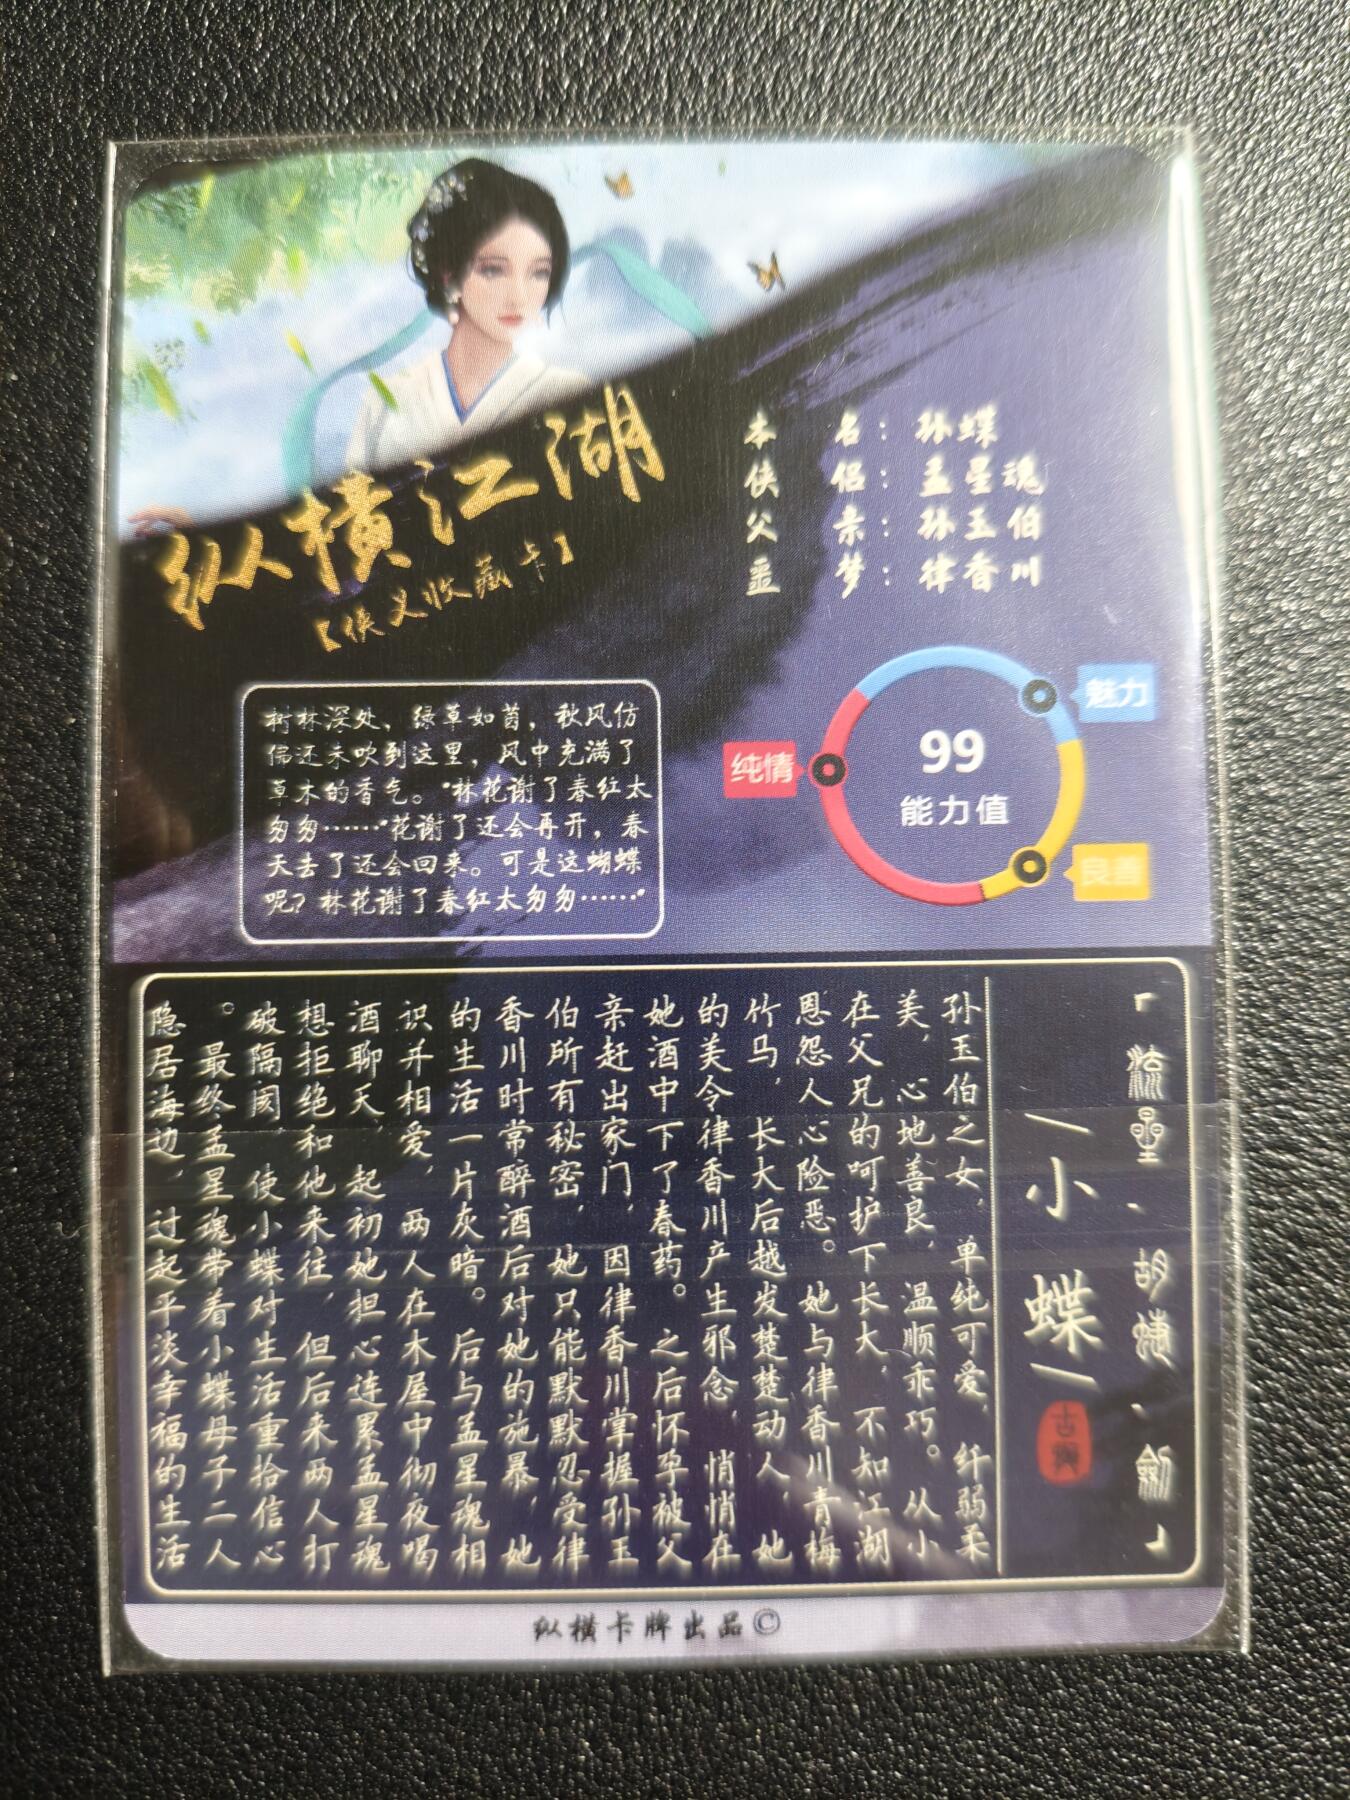 纵横江湖
【侠义收藏卡】
本名：孙蝶
侠侣：孟星魂
父亲：孙玉伯
噩梦：律香川
树林深处，绿草如茵，秋风仿
佛还未吹到这里，风中充满了
草木的香气。“林花谢了春红太
匆匆……“花谢了还会再开，春
天去了还会回来。可是这蝴蝶
呢？林花谢了春红太匆匆……”
魅力
纯情
99
能力值
良善
「流星、胡蝶、劍」
小蝶
古龍
孙玉伯之女，单纯可爱，纤弱柔
美，心地善良，温顺乖巧。从小
在父兄的呵护下长大，不知江湖
恩怨人心险恶。她与律香川青梅
竹马，长大后越发楚楚动人，她
的美令律香川产生邪念，悄悄在
她酒中下了春药。之后怀孕破父
亲赶出家门，因律香川掌握孙玉
伯所有秘密，她只能默默忍受律
香川时常醉酒后对她的施暴，她
的生活一片灰暗。后与孟星魂相
识并相爱，两人在木屋中彻夜喝
酒聊天，起初她担心连累孟星魂
想拒绝和他来往，但后来两人打
破隔阂，使小蝶对生活重拾信心
。最终孟星魂带着小蝶母子二人
隐居海边，过起平淡幸福的生活
纵横卡牌出品©